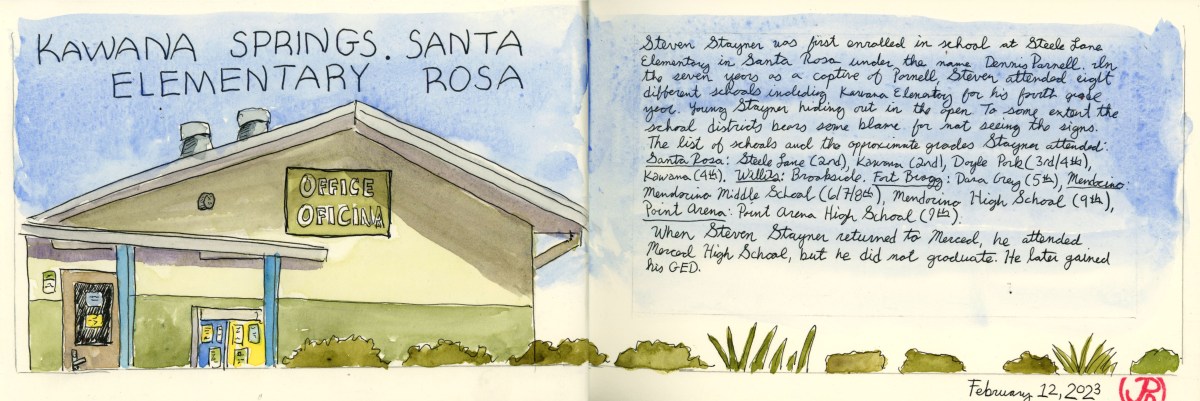 KAWANA SPRINGS. SANTA
ELEMENTARY ROSA
OFFICE
OFICINA
Steven Stayner was first enrolled in school at Steele Lane
Elementary in Santa Rosa under the name Dennis Parnell. In
the seven years as a captive of Parnell Steven attended eight
different schools including Kawana Elementary for his forth grade
year. Young Stayner hiding out in the open. To some extent the
school districts bears some blame for not seeing the signs.
The list of schools and the approximate grades Stayner attended:
Santa Rosa: Steele Lane (2nd), Kawana (2nd), Doyle Park (3rd/4th),
Kawana (4th). Willits: Brookside. Fort Bragg: Dana Grey (5th), Mendocino:
Mendocino Middle School (6/7/8th), Mendocino High School (9th),
Point Arena: Point Arena High School (9th).
When Steven Stayner returned to Merced, he attended
Merced High School, but he did not graduate. He later gained
his GED.
February 12, 2023